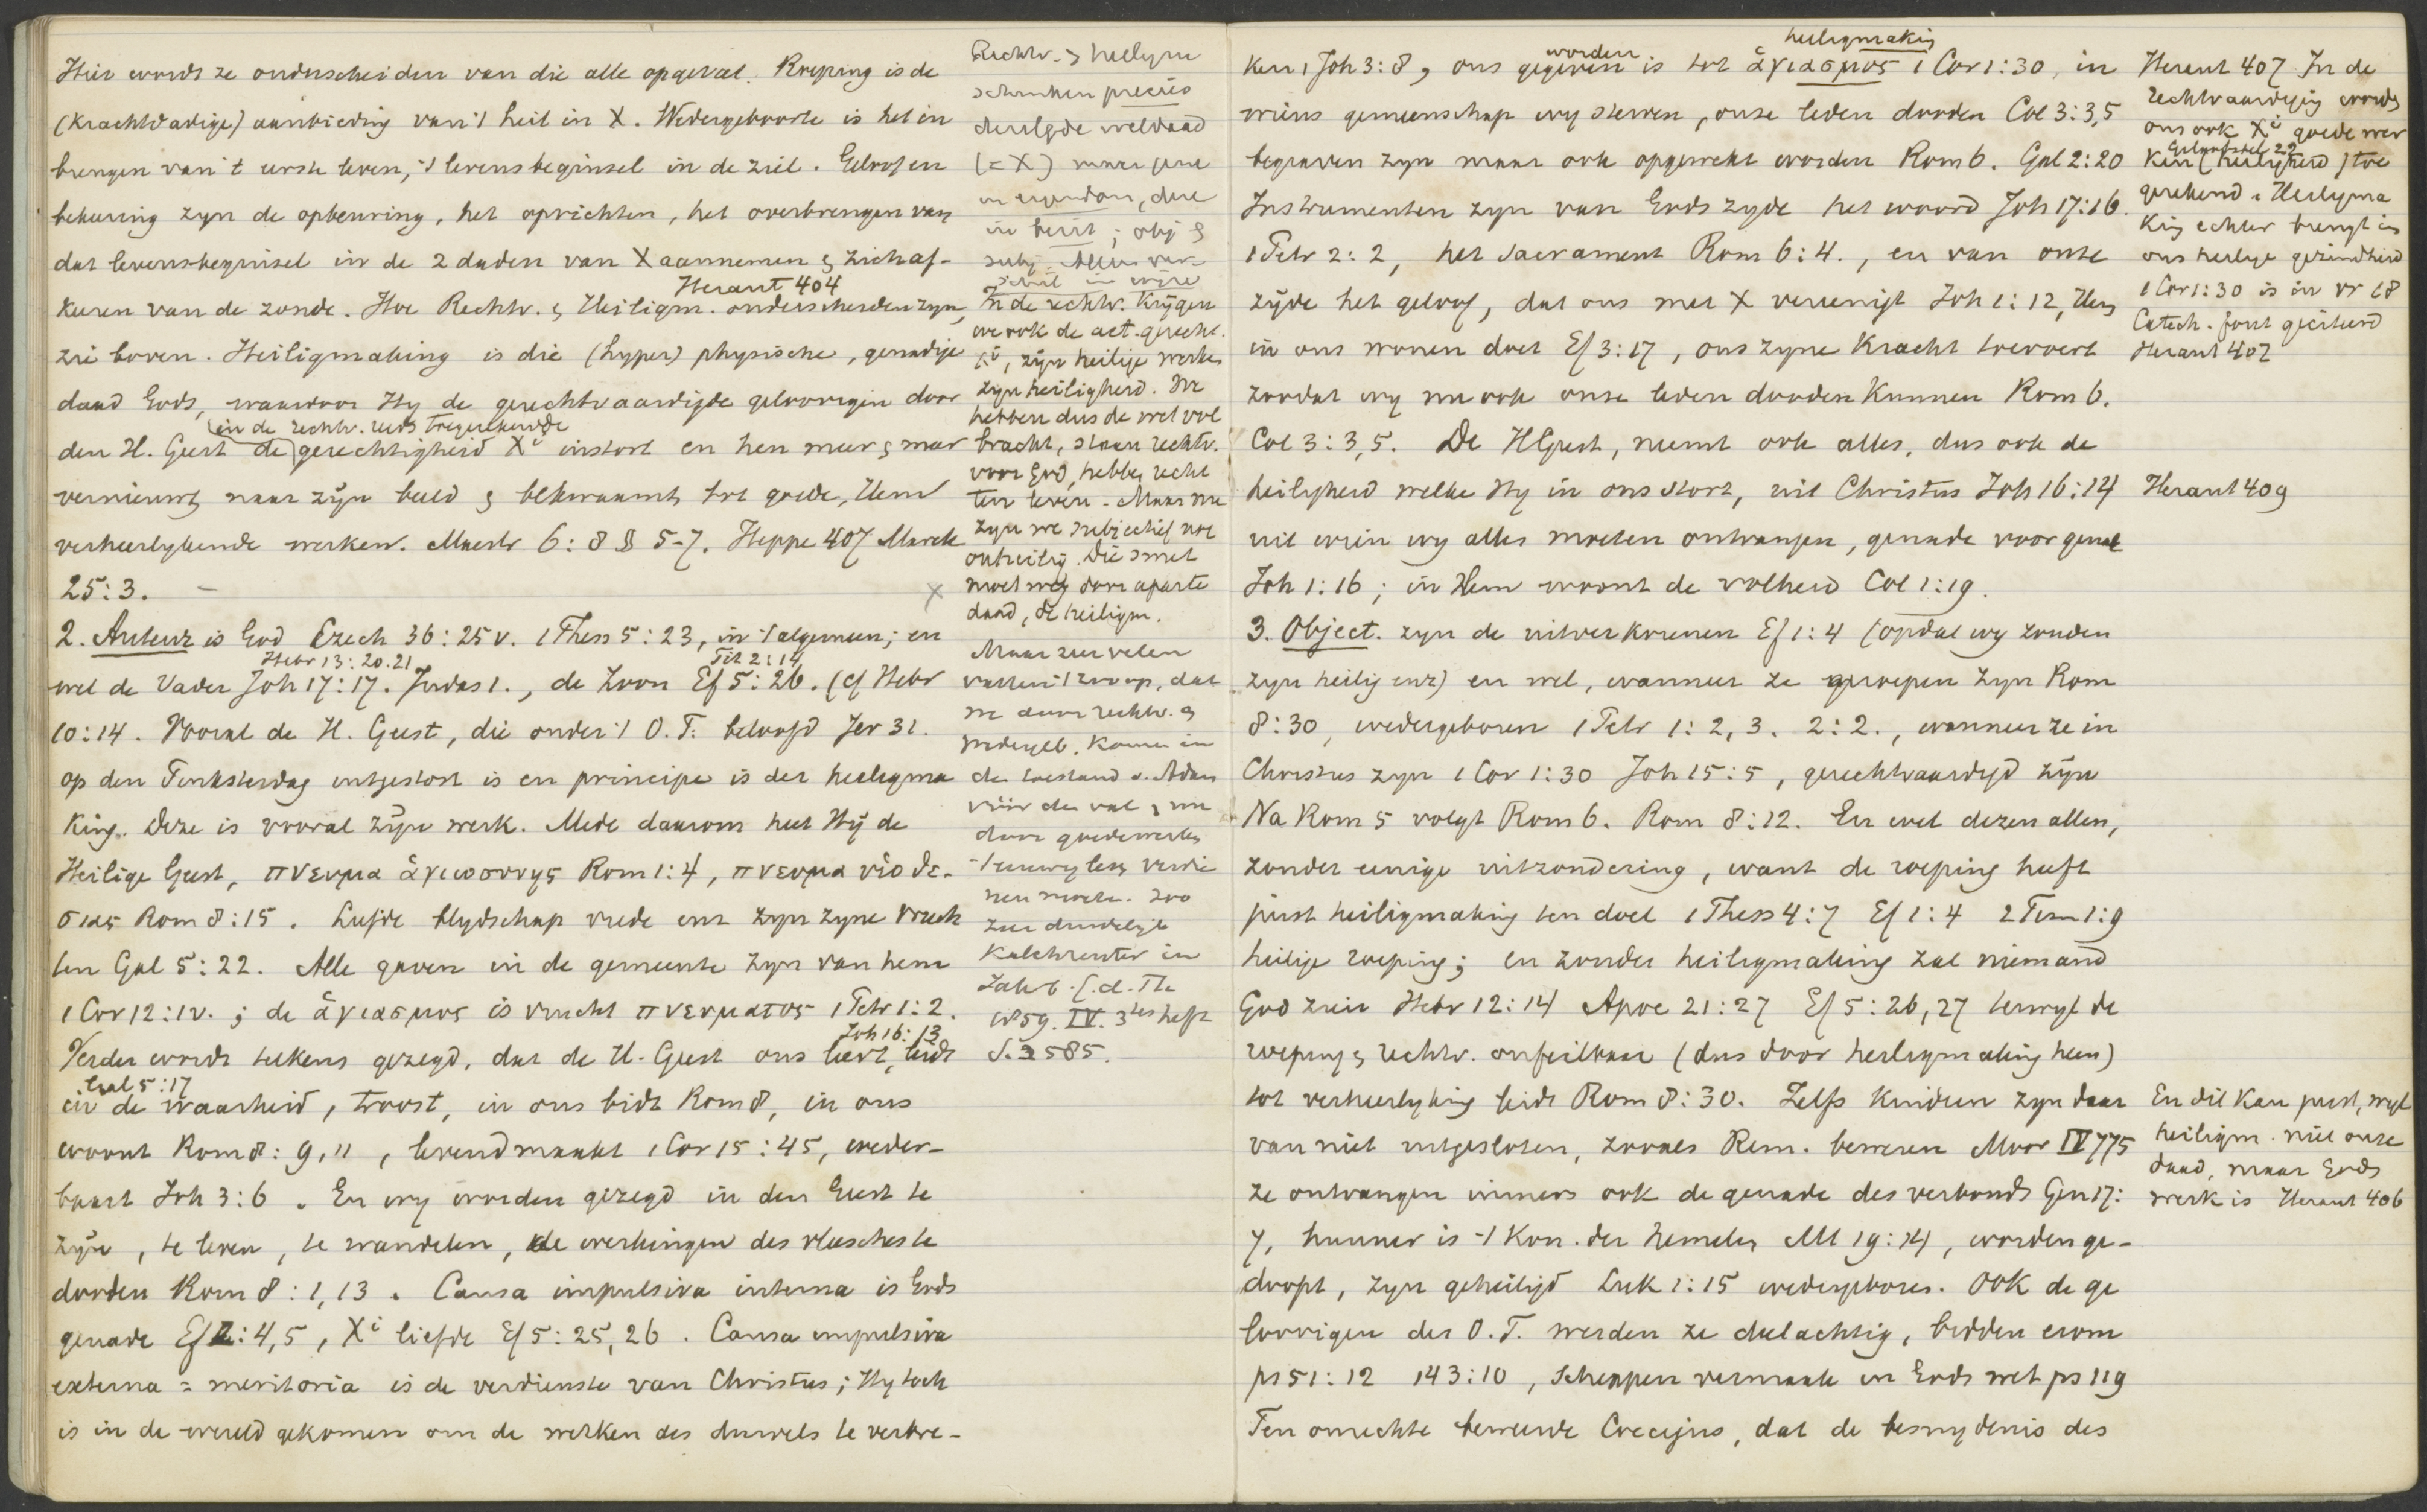 Hier wordt ze onderscheiden van die alle opgevat. Roeping is de
(krachtdadige) aanbieding van 't heil in X. Wedergeboorte is het in
brengen van 't eerste leven, 't levensbeginsel in de ziel. Geloof en
bekeering zyn de opbeuring, het oprichten, het overbrengen van
dat levensbeginsel in de 2 daden van X aannemen & zich af-
Heraut 404
keeren van de zonde. Hoe Rechtv. & Heiligm. onderscheiden zyn,
zie boven. Heiligmaking is die (hyper) physische, genadige
daad Gods, waardoor Hy de gerechtvaardigde geloovigen door
in de rechtv. reeds toegerekende
den H. Geest de gerechtigheid Xi instort en hen meer & meer
vernieuwt naar zyn beeld & bekwaamt tot goede, Hem
verheerlykende werken. Mastr 6:8 § 5-7. Heppe 407 Marck
25:3. –
2. Auteur is God Ezech 36:25 v. 1 Thess 5:23, in 't algemeen; en
Hebr 13:20.21 Tit 2:14
wel de Vader Joh 17:17. Judas 1., de Zoon Ef 5:26. (cf Hebr
10:14. Vooral de H. Geest, die onder 't O.T. beloofd Jer 31.
op den Pinksterdag uitgestort is en principe is der heiligma
king. Deze is vooral zyn werk. Mede daarom heet Hy de
Heilige Geest, πνευμα ἁγιωσυνης Rom 1:4, πνευμα υἱοθε-
σιας Rom 8:15. Liefde blydschap vrede enz zyn zyne vruch
ten Gal 5:22. Alle gaven in de gemeente zyn van hem
1 Cor 12:1v.; de ἁγιασμος is vrucht πνευματος 1 Petr 1:2.
Joh 16:13
Verder wordt telkens gezegd, dat de H. Geest ons leert, leidt
Gal 5:17
in de waarheid, troost, in ons bidt Rom 8, in ons
woont Rom 8:9,11, levend maakt 1 Cor 15:45, weder-
baart Joh 3:6. En wy worden gezegd in den Geest te
zyn, te leven, te wandelen, de werkingen des vleesches te
dooden Rom 8:1,13. Causa impulsiva interna is Gods
genade Ef 2:4,5, Xi liefde Ef 5:25,26. Causa impulsiva
externa = meritoria is de verdienste van Christus; Hy toch
is in de wereld gekomen om de werken des duivels te verbre-
Rechtv. & heiligm
schenken precies
dezelfde weldaad
(= X) maar gene
in eigendom, deze
in bezit; obj &
subj.
In de rechtv. krygen
we ook de act. gerecht.
Xi, zyn heilige werken
zyn heiligheid. We
hebben dus de wet vol
bracht, staan rechtv.
voor God, hebben recht
ten leven. Maar nu
zyn we subjectief nog
onheilig. Die smet
X moet weg door aparte
daad, de heiligm.
Maar zeer velen
vatten 't zoo op, dat
we door rechtv. &
wedergeb. komen in
den toestand v. Adam
vóór den val & nu
door goede werken
't eeuwig leven verdie
nen moeten. Zoo
zeer duidelyk
Kalchreuter in
Jahrb. f. d. Th.
1859. IV. 3tes heft
S. 585.
worden heiligmaking
ken 1 Joh 3:8, ons gegeven is tot ἁγιασμος 1 Cor 1:30, in
wiens gemeenschap wy sterven, onze leden dooden Col 3:3,5
begraven zyn maar ook opgewekt worden Rom 6. Gal 2:20
Instrumenten zyn van Gods zyde het woord Joh 17:16.
1 Petr 2:2, het sacrament Rom 6:4., en van onze
zyde het geloof, dat ons met X vereenigt Joh 1:12, Hem
in ons wonen doet Ef 3:17, ons zyne kracht toevoert
zoodat wy nu ook onze leden dooden kunnen Rom 6.
Col 3:3,5. De H Geest, neemt ook alles, dus ook de
heiligheid welke Hy in ons stort, uit Christus Joh 16:14
uit wien wy alles moeten ontvangen, genade voor genade
Joh 1:16; in Hem woont de volheid Col 1:19.
3. Object. zyn de uitverkorenen Ef 1:4 (opdat wy zouden
zyn heilig enz) en wel, wanneer ze geroepen zyn Rom
8:30, wedergeboren 1 Petr 1:2,3. 2:2., wanneer ze in
Christus zyn 1 Cor 1:30 Joh 15:5, gerechtvaardigd zyn
Na Rom 5 volgt Rom 6. Rom 8:12. En wel dezen allen,
zonder eenige uitzondering, want de roeping heeft
juist heiligmaking ten doel 1 Thess 4:7 Ef 1:4 2 Tim 1:9
heilige roeping; en zonder heiligmaking zal niemand
God zien Hebr 12:14 Apoc 21:27 Ef 5:26,27 terwyl de
roeping & rechtv. onfeilbaar (dus door heiligmaking heen)
tot verheerlyking leidt Rom 8:30. Zelfs kinderen zyn daar
van niet uitgesloten, zooals Rem. beweren Moor IV 775
ze ontvangen immers ook de genade des verbonds Gen 17:
7, hunner is 't Kon. der hemelen Mt 19:14, worden ge-
doopt, zyn geheiligd Luk 1:15 wedergeboren. Ook de ge
loovigen des O.T. werden ze deelachtig, bidden erom
ps 51:12 143:10, scheppen vermaak in Gods wet ps 119
Ten onrechte beweerde Coccejus, dat de besnydenis des
Heraut 407 In de
rechtvaardiging wordt
ons ook Xi goede wer
Geloofsbel 22
ken (heiligheid) toe
gerekend. Heiligma
king echter brengt in
ons heilige gezindheid
1 Cor 1:30 is in vr 18
Catech. fout geciteerd
Heraut 407
Heraut 409
En dit kan juist, wyl
heiligm. niet onze
daad, maar Gods
werk is Heraut 406